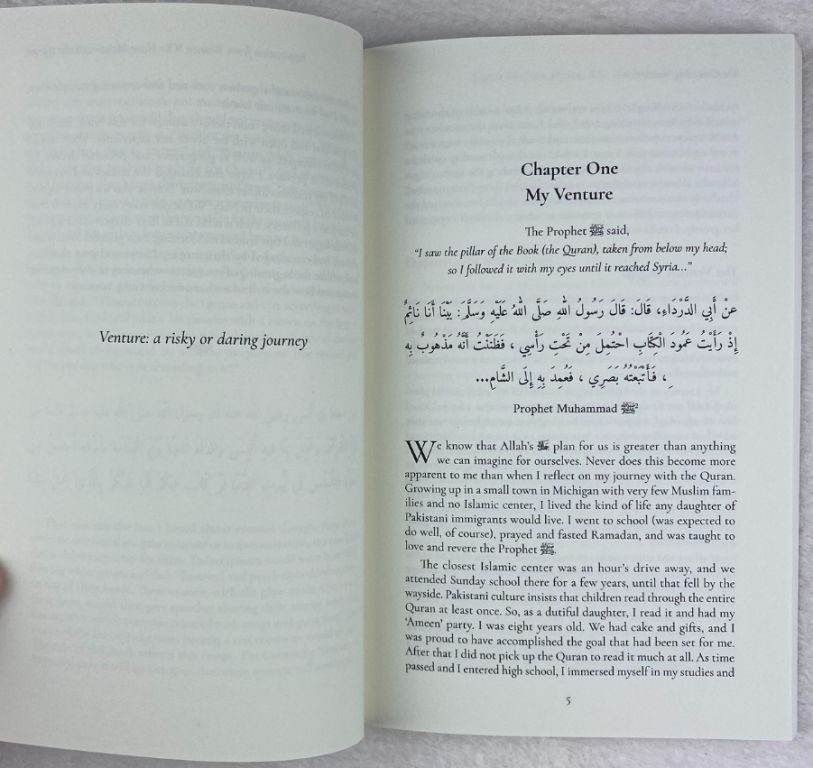 Venture: a risky or daring journey
Chapter One
My Venture
The Prophet ﷺ said,
“I saw the pillar of the Book (the Quran), taken from below my head;
so I followed it with my eyes until it reached Syria...”
عَنْ أَبِي الدَّرْدَاءِ، قَالَ: قَالَ رَسُولُ اللهِ صَلَّى اللهُ عَلَيْهِ وَسَلَّمَ: بَيْنَا أَنَا نَائِمٌ
إِذْ رَأَيْتُ عَمُودَ الْكِتَابِ احْتُمِلَ مِنْ تَحْتِ رَأْسِي ، فَظَنَنْتُ أَنَّهُ مَذْهُوبٌ بِهِ
ِ، فَأَتْبَعْتُهُ بَصَرِي ، فَعُمِدَ بِهِ إِلَى الشَّامِ...
Prophet Muhammad ﷺ²
We know that Allah’s ﷻ plan for us is greater than anything
we can imagine for ourselves. Never does this become more
apparent to me than when I reflect on my journey with the Quran.
Growing up in a small town in Michigan with very few Muslim fam-
ilies and no Islamic center, I lived the kind of life any daughter of
Pakistani immigrants would live. I went to school (was expected to
do well, of course), prayed and fasted Ramadan, and was taught to
love and revere the Prophet ﷺ.
The closest Islamic center was an hour’s drive away, and we
attended Sunday school there for a few years, until that fell by the
wayside. Pakistani culture insists that children read through the entire
Quran at least once. So, as a dutiful daughter, I read it and had my
‘Ameen’ party. I was eight years old. We had cake and gifts, and I
was proud to have accomplished the goal that had been set for me.
After that I did not pick up the Quran to read it much at all. As time
passed and I entered high school, I immersed myself in my studies and
5